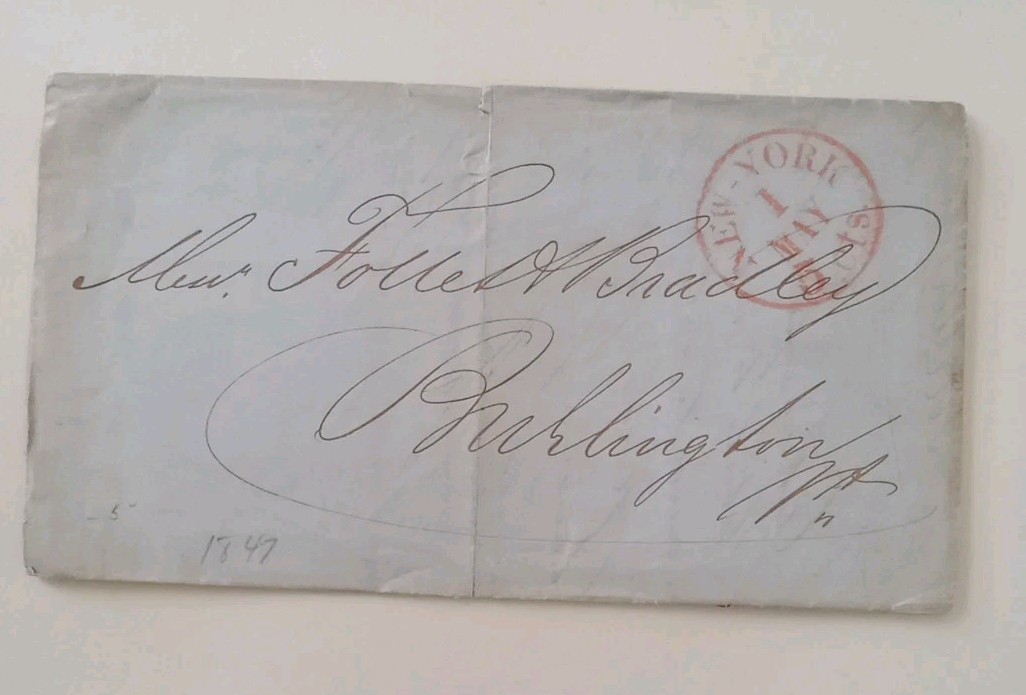 NEW-YORK 5 cts
1
Messrs. Follett & Bradley
Burlington
Vt.
5
1847